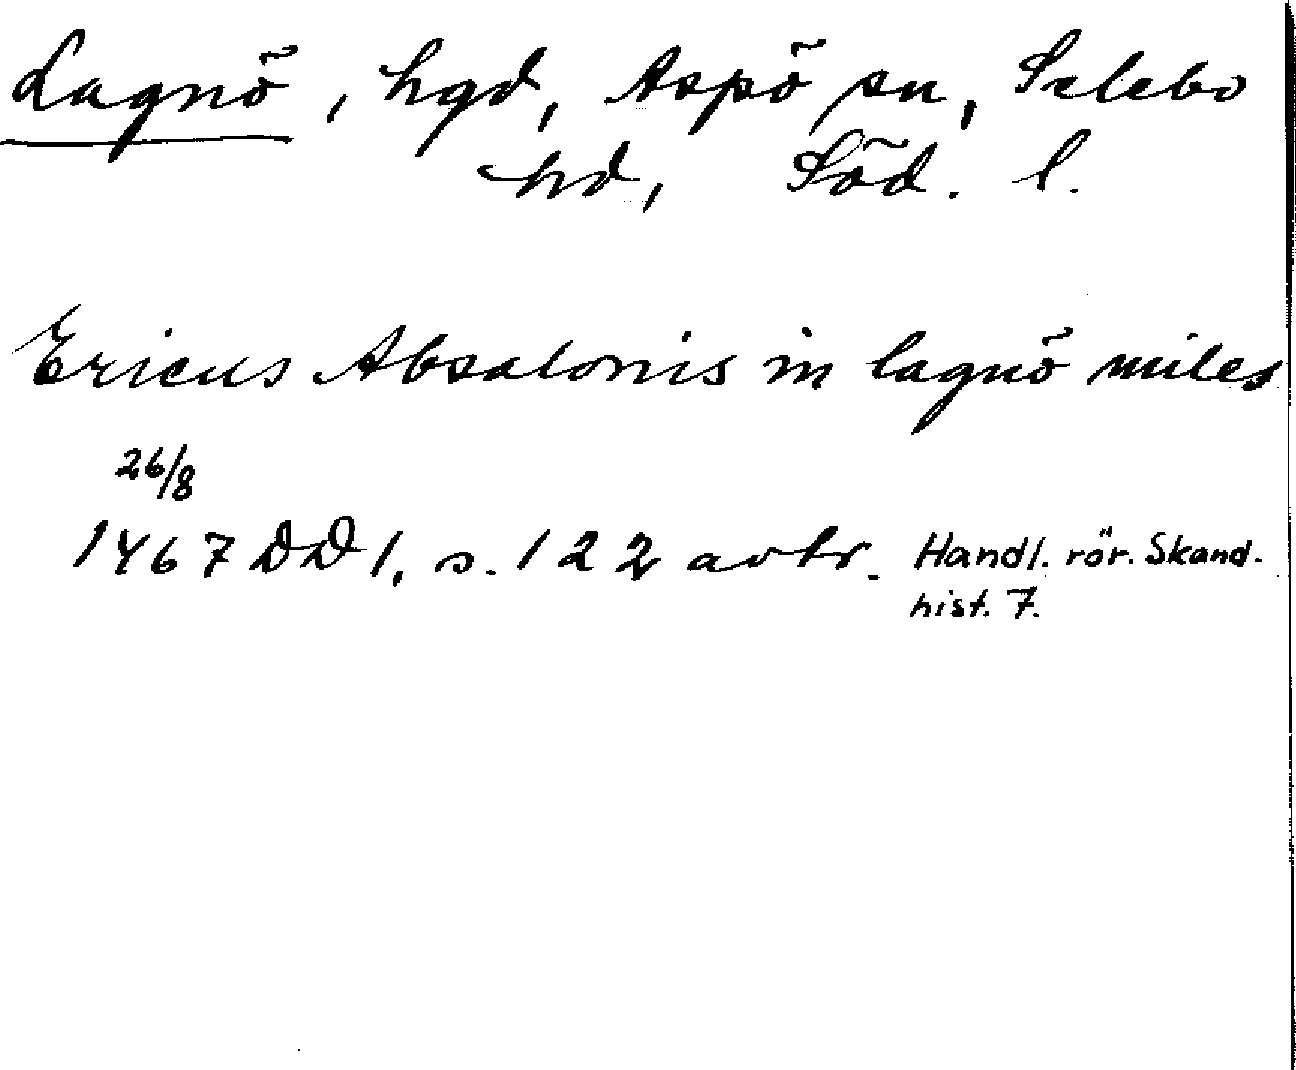 Lagnö, hgd, Aspö sn, Selebo
hd, Söd. l.
Ericus Absalonis in lagnö miles
26/8
1467 DD 1, s. 122 avtr. Handl. rör. Skand.
hist. 7.